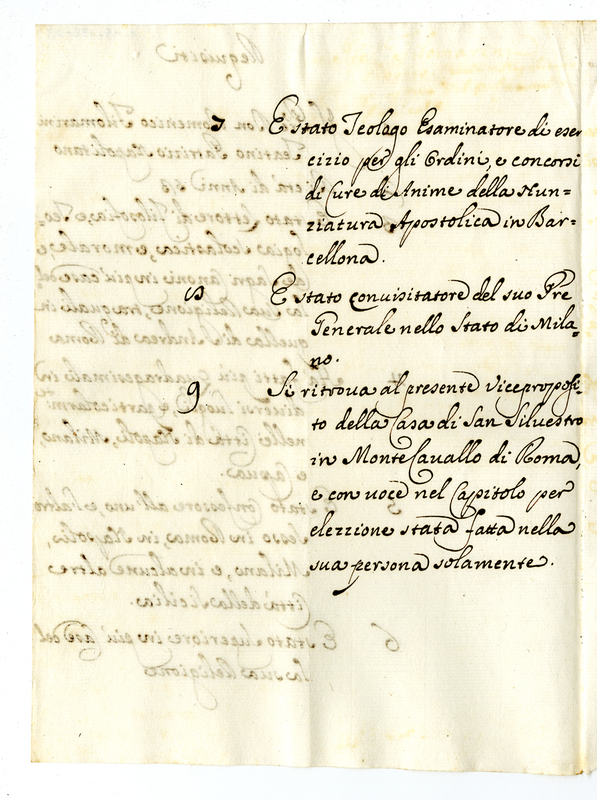 7 E stato Teologo Esaminatore di eser
cizio per gli Ordini, e concorsi
di Cure di Anime della Nun=
ziatura Apostolica in Bar=
cellona.
8 E stato convisitatore del suo Pre
Generale nello Stato di Mila=
no.
9 Si ritrova al presente Viceproposi=
to della Casa di San Silvestro
in Monte Cavallo di Roma,
e con voce nel Capitolo per
elezzione stata fatta nella
sua persona solamente.